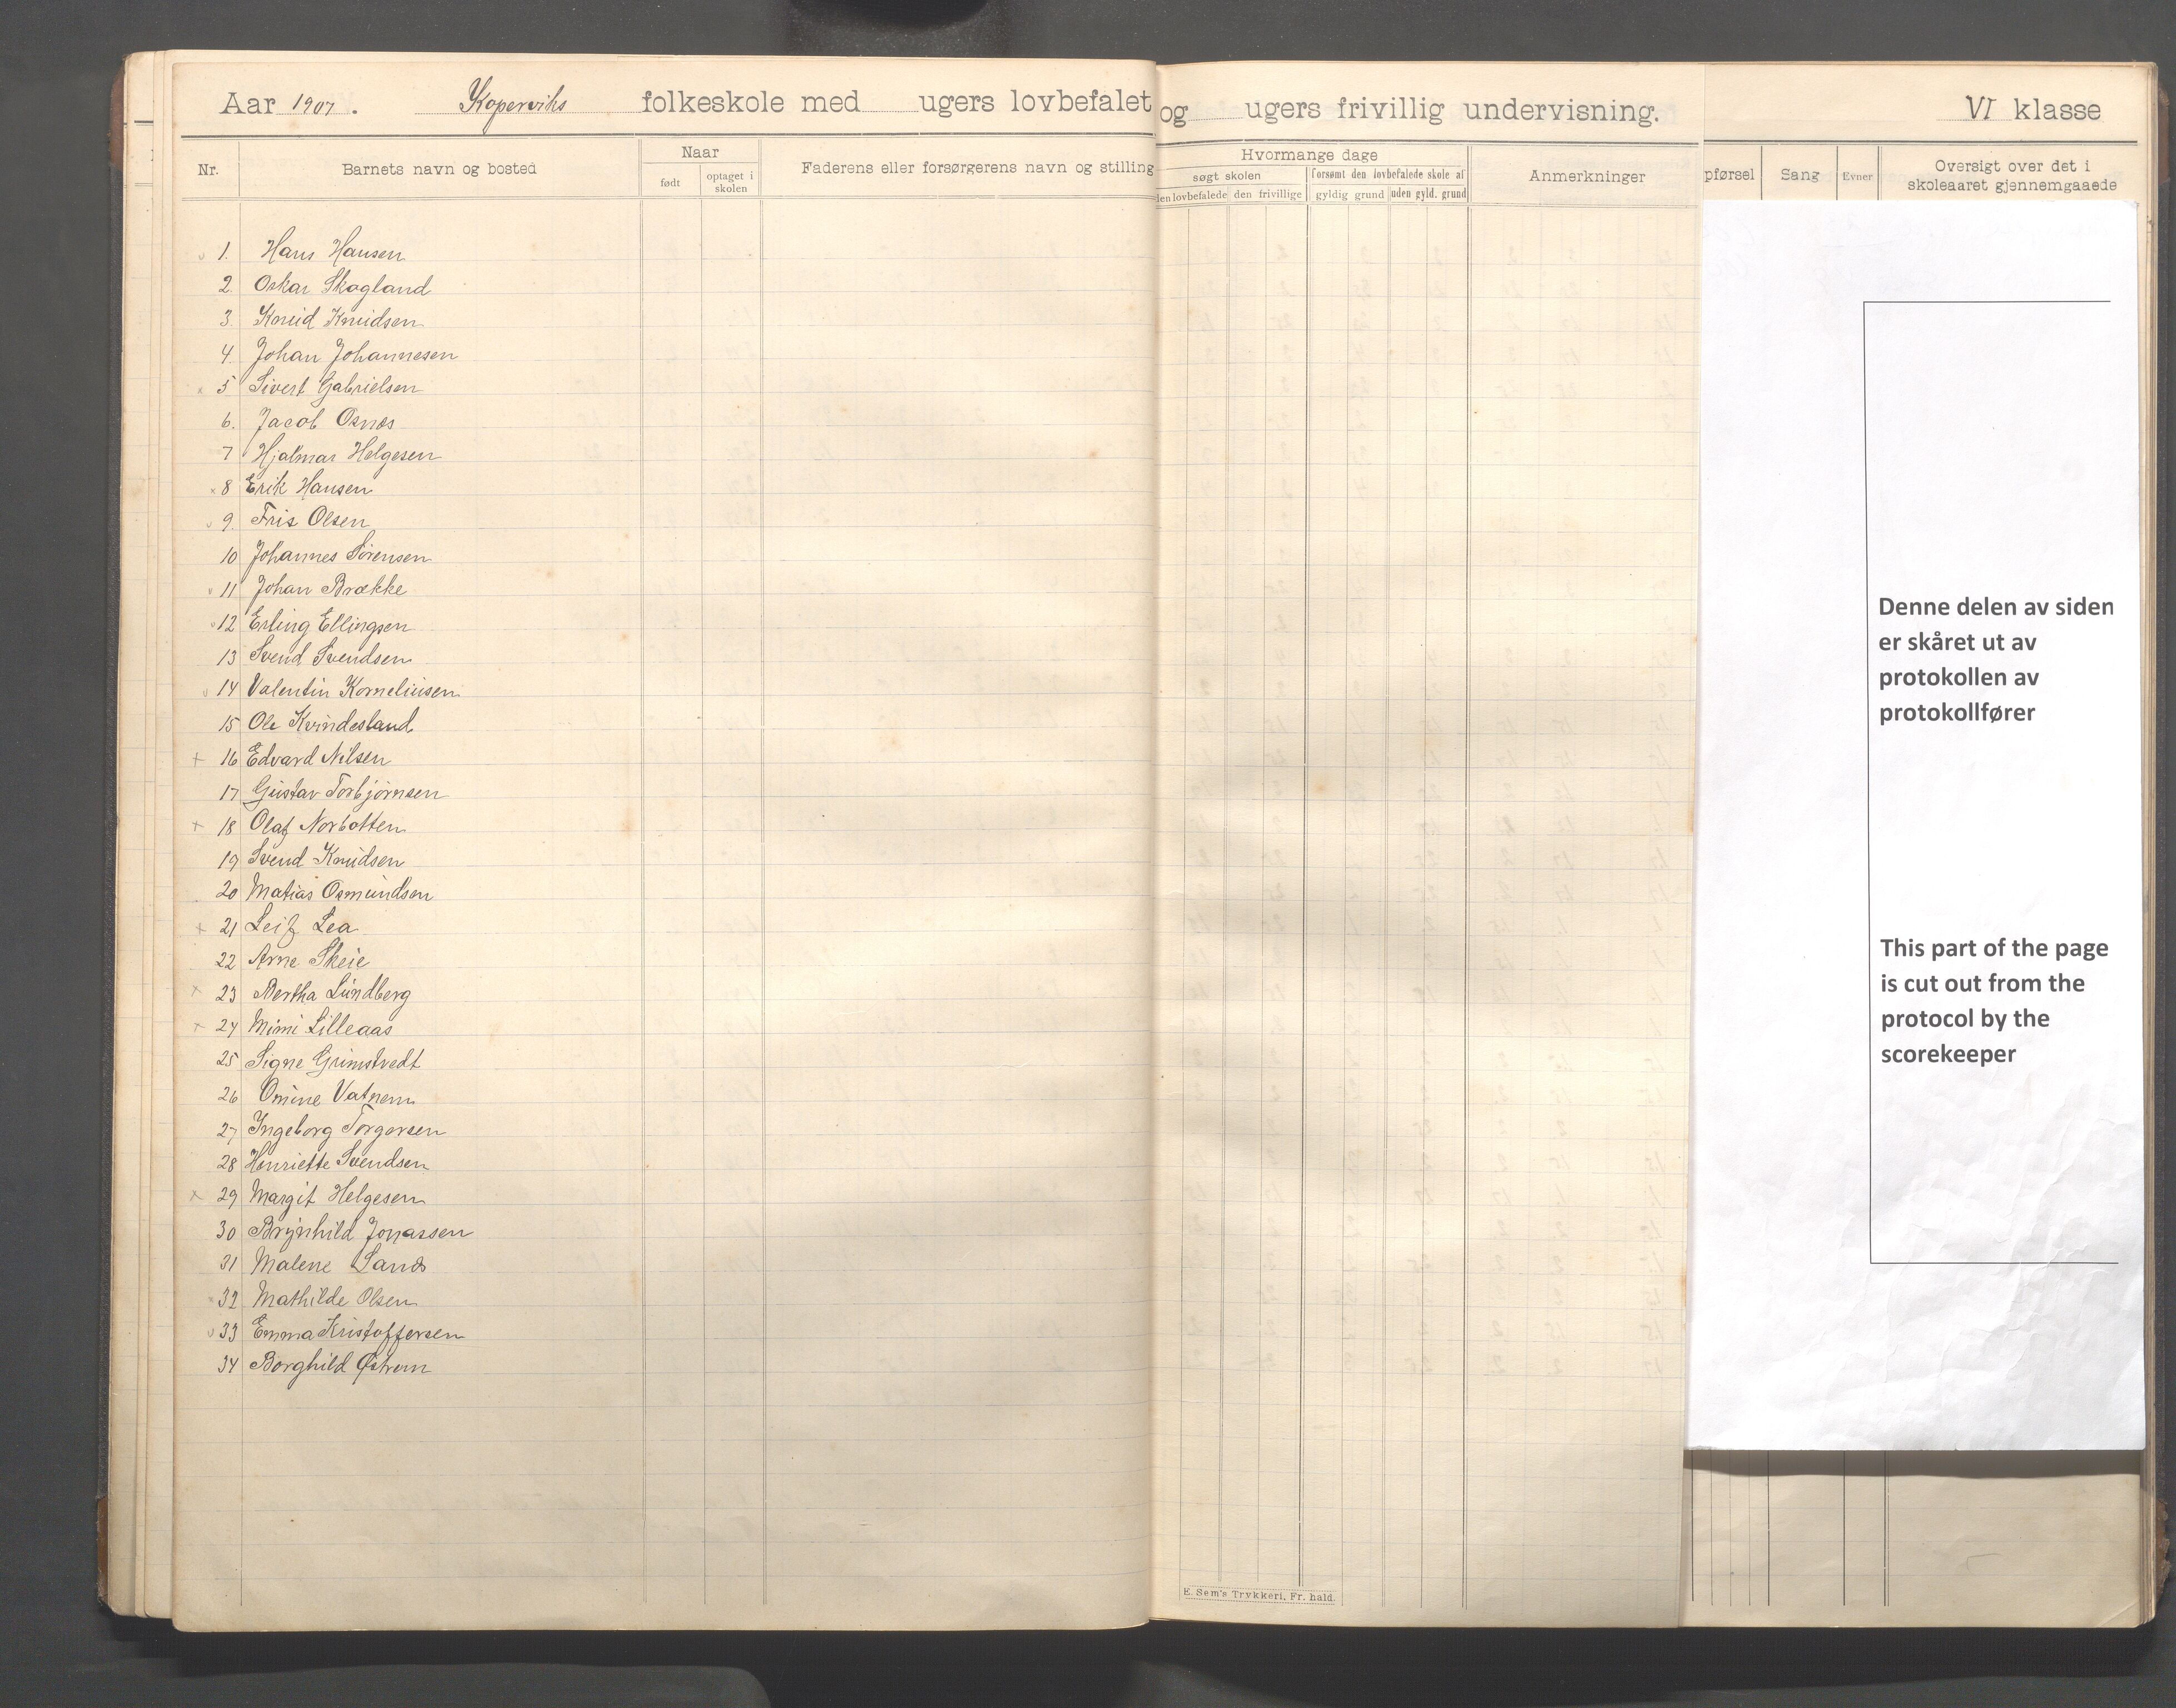 Aar 1907. Koperviks folkeskole med ugers lovbefalet og ugers frivillig undervisning. VI klasse
Nr. Barnets navn og bosted Naar født optaget i skolen Faderens eller forsørgerens navn og stilling
Hvormange dage søgt skolen den lovbefalede den frivillige forsømt den lovbefalede skole af gyldig grund uden gyld. grund Anmerkninger
pførsel Sang Evner Oversigt over det i skoleaaret gjennemgaaede
1. Hans Hansen
2. Oskar Skogland
3. Knud Knudsen
4. Johan Johannesen
5 Sivert Gabrielsen
6. Jacob Osnes
7 Hjalmar Helgesen
× 8 Erik Hansen
v 9. Fris Olsen
10 Johannes Sørensen
v 11 Johan Brække
v 12 Erling Ellingsen
13 Svend Svendsen
v 14 Valentin Korneliusen
15 Ole Kvindesland
+ 16 Edvard Nilsen
17 Gustav Torbjørnsen
+ 18 Olaf Norbotten
19 Svend Knudsen
20 Matias Osmundsen
+ 21 Leif Lea
22 Arne Skeie
× 23 Bertha Lundberg
+ 24 Mimi Lilleaas
25 Signe Grimstvedt
26 Omine Vatnem
27 Ingeborg Torgersen
28 Henriette Svendsen
× 29 Margit Helgesen
30 Brynhild Jonassen
31 Malene
32 Mathilde Olsen
v 33 Emma Kristoffersen
34 Borghild Østrem
E. Sem's Trykkeri, Fr. hald.
Denne delen av siden
er skåret ut av
protokollen av
protokollfører
This part of the page
is cut out from the
protocol by the
scorekeeper